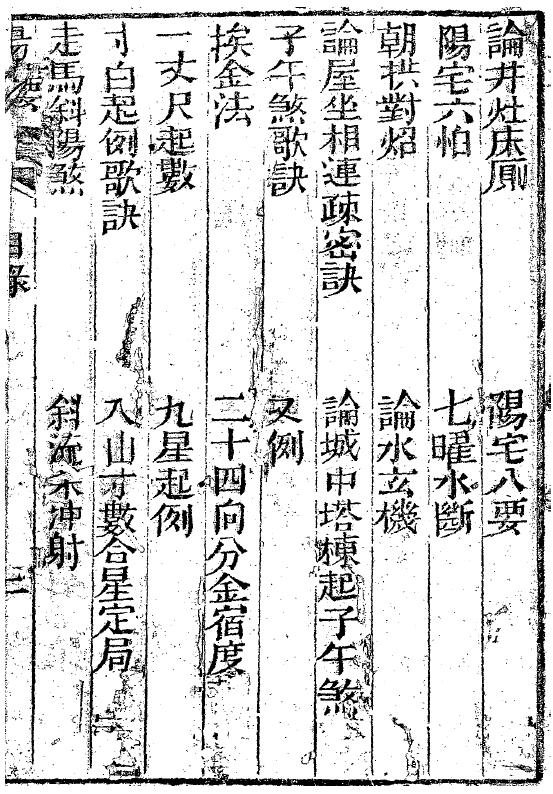 論井灶床厠　陽宅八要
陽宅六怕　七曜水斷
朝拱對炤　論水玄機
論屋坐相連疎密訣　論城中塔棟起子午煞
子午煞歌訣　又例
挨金法　二十四向分金宿度
一丈尺起數　九星起例
寸白起例歌訣　入山寸數合星定局
走馬斜陽煞　斜流禾冲射
目錄